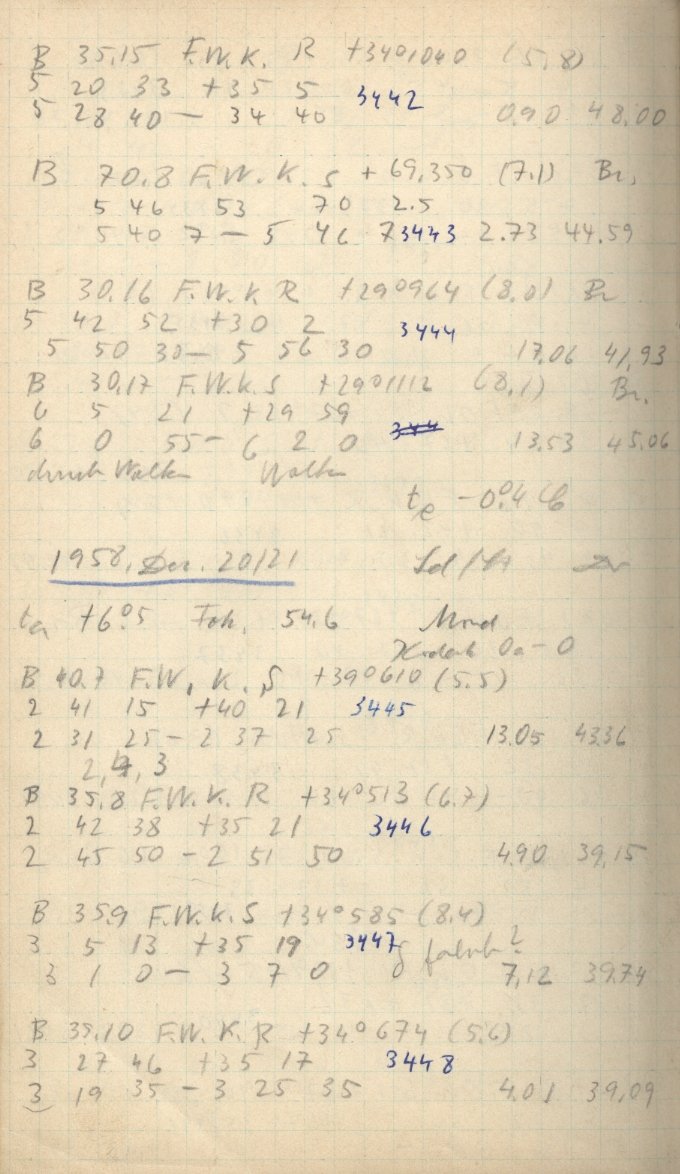 B 35.15 F.W.K. R +34°1040 (5,8)
5 20 33 +35 5 3442
5 28 40 - 34 40 0.90 48.00
B 70.8 F.W.K. S +69.350 (7.1) Br.
5 46 53 70 2.5
5 40 7 - 5 46 7 3443 2.73 44.59
B 30.16 F.W.K R +29°964 (8.0) Br
5 42 52 +30 2 3444
5 50 30 - 5 56 30 17.06 41,93
B 30.17 F.W.K.S +29°1112 (8,1) Br.
6 5 21 +29 59
6 0 55 - 6 2 0 344 13.53 45.06
durch Wolken Wolken
te -0°.4
1958, Dez. 20/21
ta +6°.5 Fok. 54.6 Mond
0a-0
B 40.7 F.W. K. S +39°610 (5.5)
2 41 15 +40 21 3445
2 31 25 - 2 37 25 13.05 43.36
2, 4, 3
B 35.8 F.W.K. R +34°513 (6.7)
2 42 38 +35 21 3446
2 45 50 - 2 51 50 4.90 39.15
B 35.9 F.W.K.S +34°585 (8.4)
3 5 13 +35 19 3447 falsch?
3 1 0 - 3 7 0 7,12 39.74
B 35.10 F.W.K.R +34°674 (5.6)
3 27 46 +35 17 3448
3 19 35 - 3 25 35 4.01 39,09